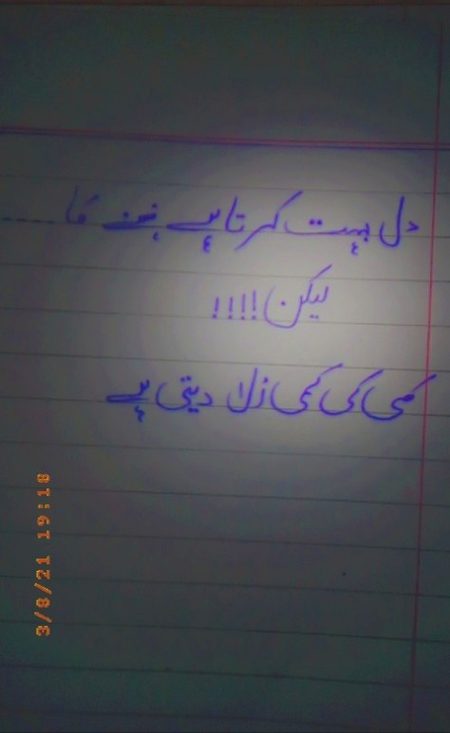 دل بہت کرتا ہے ہنسنے کا.....
لیکن!!!!
کسی کی کمی رُلا دیتی ہے
3/8/21 19:18